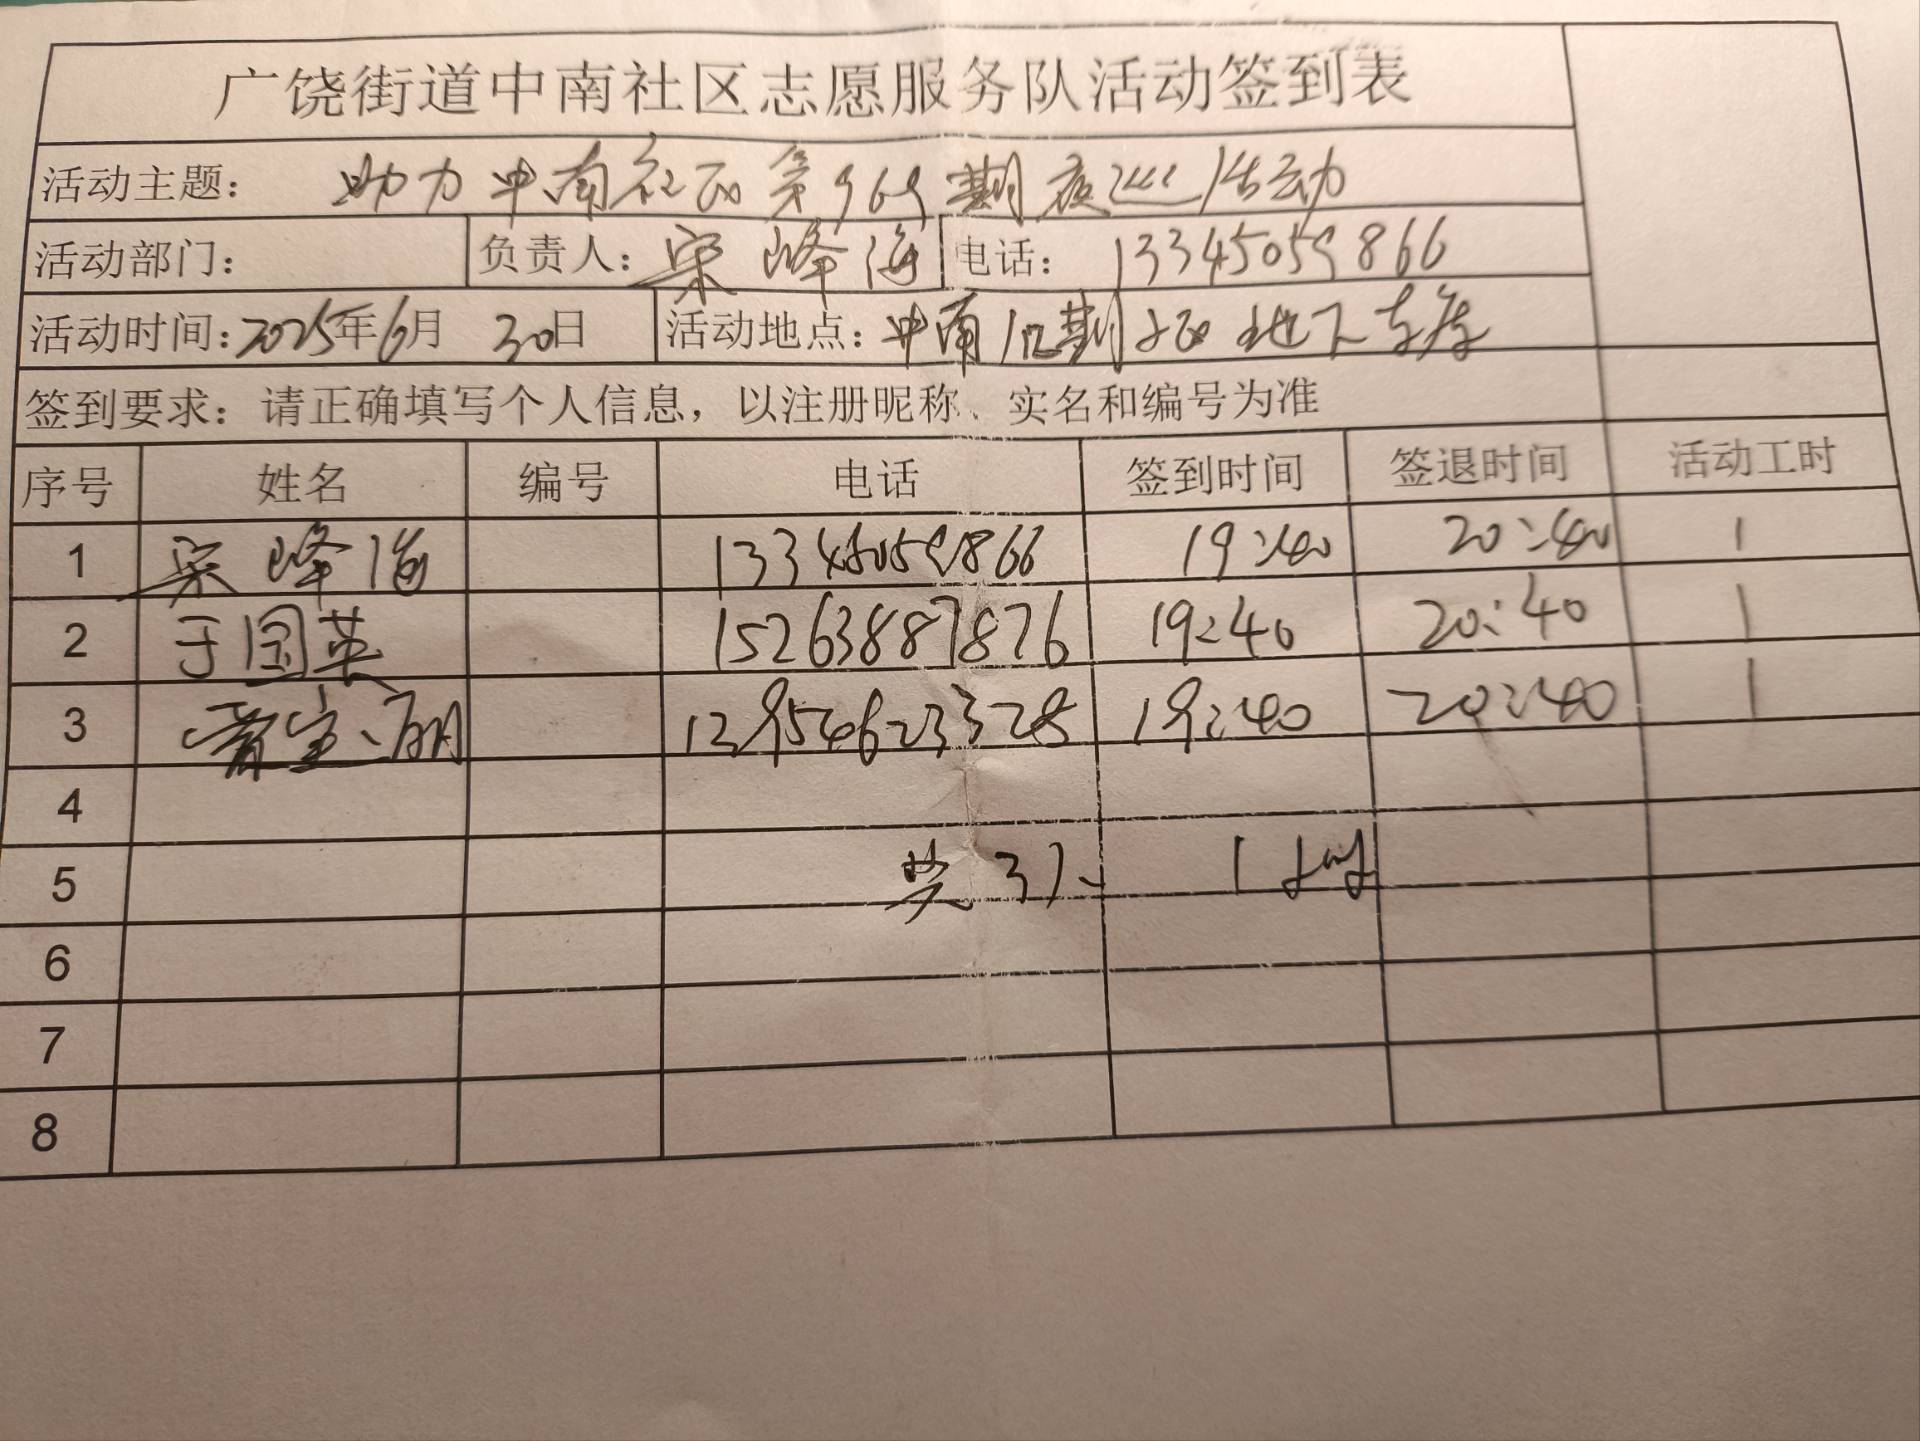 广饶街道中南社区志愿服务队活动签到表
活动主题： 助力中南社区第969期夜巡活动
活动部门： 负责人：宋峰海 电话： 13345059866
活动时间：2025年6月30日 活动地点：中南 期 地下车库
签到要求：请正确填写个人信息，以注册昵称、实名和编号为准
序号 姓名 编号 电话 签到时间 签退时间 活动工时
1 宋峰海 13345059866 19:40 20:40 1
2 于国英 15263887876 19:40 20:40 1
3 19:40 20:40 1
4
5 共3人 1小时
6
7
8